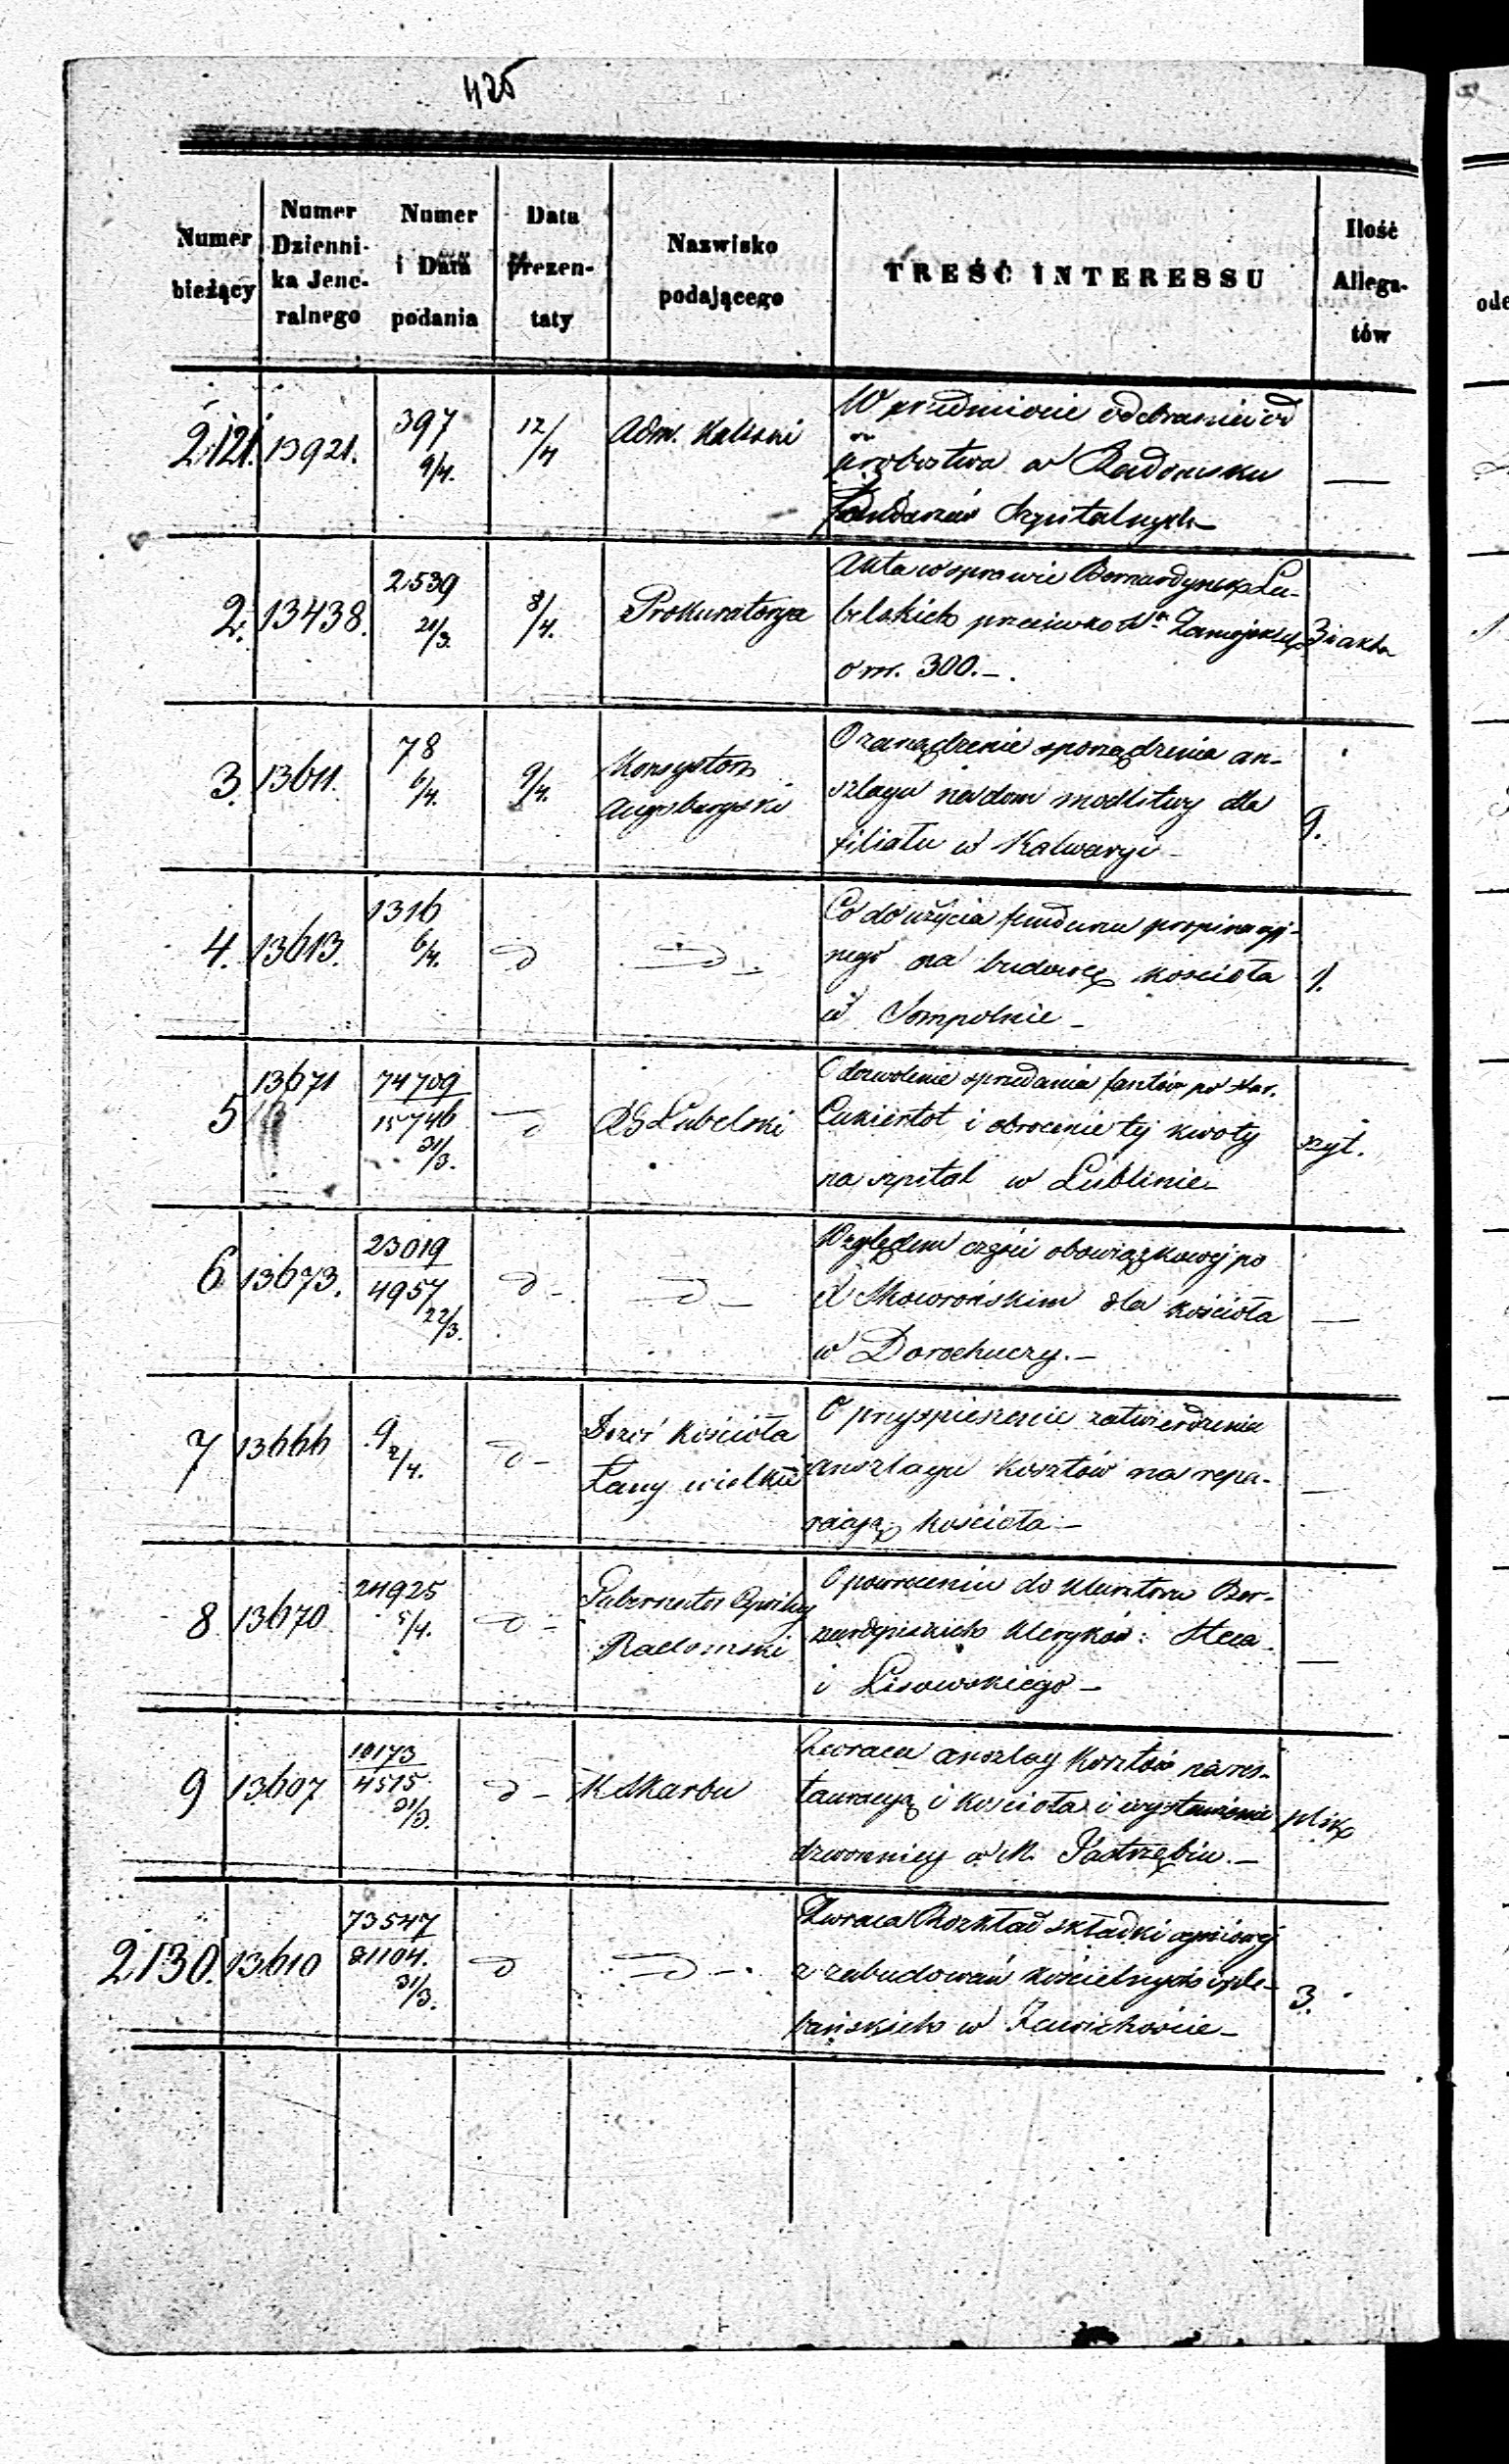 425
Numer bieżący
Numer Dzienni-ka Jene-ralnego
Numer i Data podania
Data prezen-taty
Nazwisko podającego
TREŚĆ INTERESSU
Ilość Allega-tów
2121. 13921. 397 9/4. 12/4 Adm. Kaliski W przedmiocie odebrania od
probostwa w Radomsku —
funduszów szpitalnych —
2. 13438. 2539 21/3. 8/4. Prokuratorya Akta w sprawie Bernardynek Lu-
belskich przeciwko Zamojskiej 3 i akta
o rsr. 300. —.
3. 13611. 78 6/4. 9/4. Konsystorz O zarządzenie sporządzenia an-
Augsburgski szlagu na dom modlitwy dla 9.
filiału w Kalwaryi —
4. 13613. 1316 6/4. d d — Co do użycia funduszu propinacyj-
nego na budowę kościoła 1.
w Sompolnie —
5 13671 74709 / 15746 31/3. — d RG Lubelski O dozwolenie sprzedania fantów po star.
Cukiertot i obrócenie tej kwoty szyt.
na szpital w Lublinie —
6 13673. 23019 / 4957 22/3. d — d — Względem części obowiązkowej po
Skowrońskim dla kościoła —
w Dorohuczy. —
7 13666 9 2/4. d — Dozór Kościoła O przyspieszenie zatwierdzenia
Łany wielkie anszlagu kosztów na repa- —
racją kościoła —
8 13670 24925 5/4. d — Gubernator Cywilny O powróceniu do klasztoru Ber-
Radomski nardyńskich kleryków: Steca —
i Lisowskiego —
9 13607 10173 / 4515 31/3. d — K Skarbu Zwraca anszlag kosztów na res-
tauracyą kościoła i wystawienie plik
dzwonnicy w M. Jastrzębiu. —
2130. 13610 73547 / 21104. 31/3. d d —. Zwraca Rozkład składki ogniowej
z zabudowań kościelnych i ple- 3.
bańskich w Zawichoście —
ode